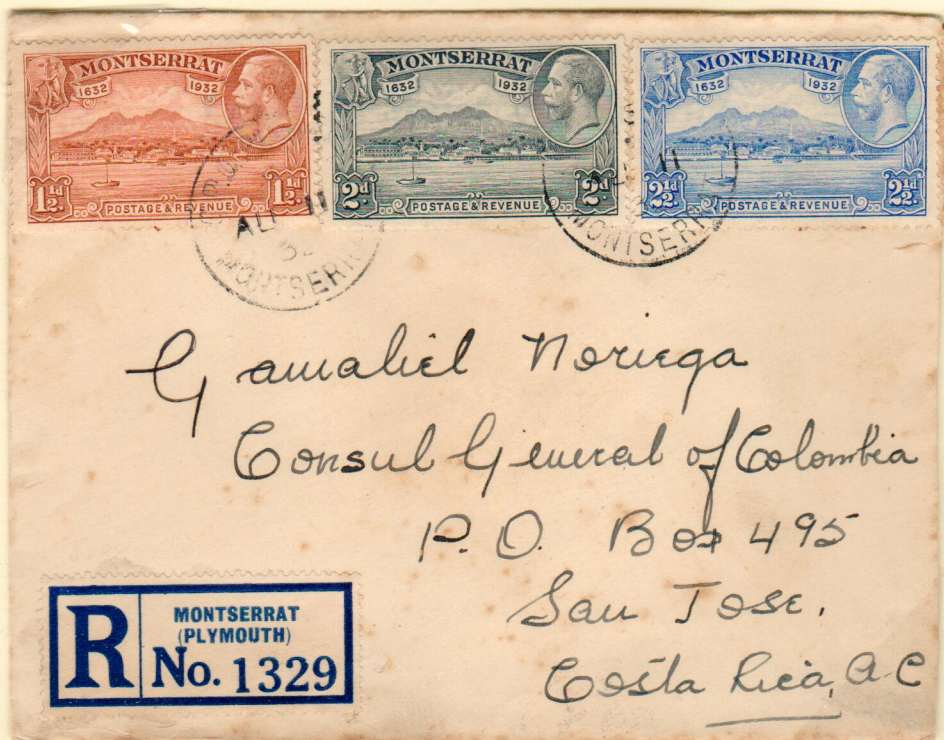 MONTSERRAT
1632 1932
1½d 1½d
POSTAGE & REVENUE
MONTSERRAT
1632 1932
2d 2d
POSTAGE & REVENUE
MONTSERRAT
1632 1932
2½d 2½d
POSTAGE & REVENUE
11
MONTSERR
11
MONTSERR
Gamaliel Noriega
Consul General of Colombia
P.O. Box 495
San Jose.
Costa Rica, A.C
R
MONTSERRAT
(PLYMOUTH)
No. 1329